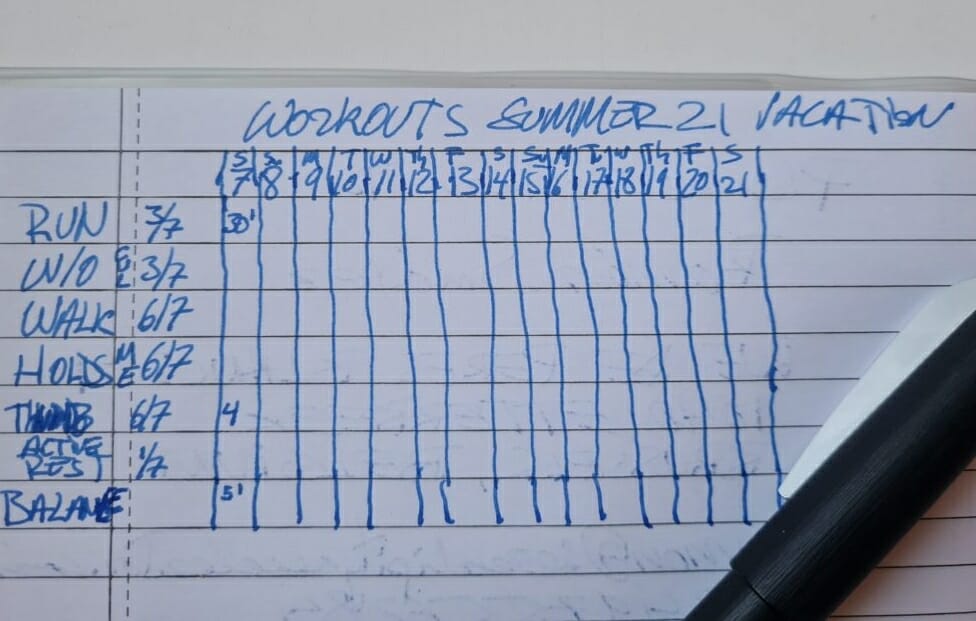 WORKOUTS SUMMER 21 VACATION
S Su M T W Th F S Su M Tu W Th F S
7 8 9 10 11 12 13 14 15 16 17 18 19 20 21
RUN 3/7 30'
W/O 3/7
WALK 6/7
HOLDS ME 6/7
THUMB 6/7 4
ACTIVE
REST 1/7
BALANCE 5'